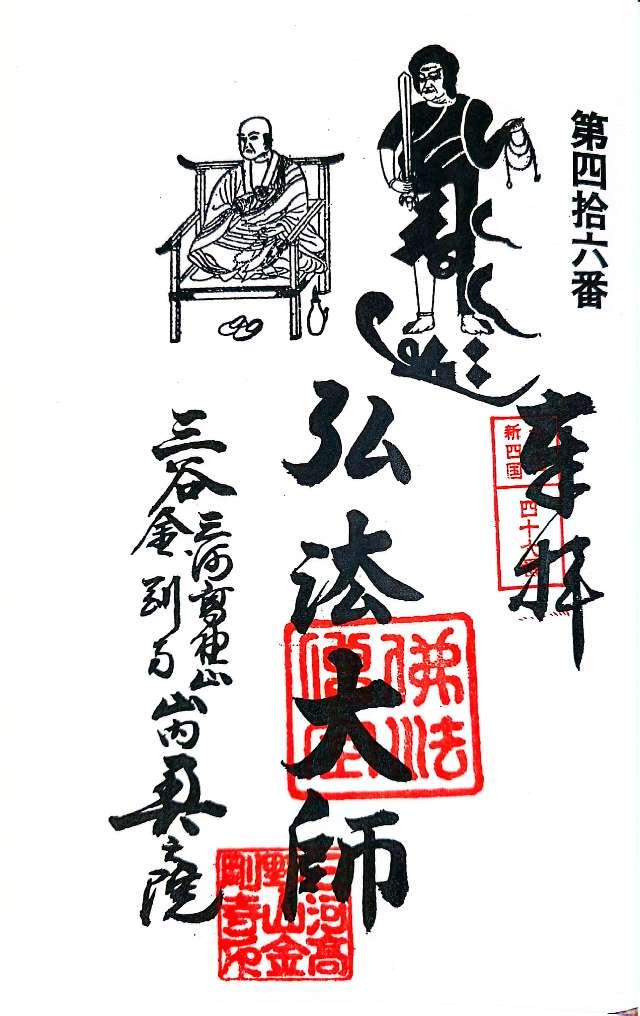 第四拾六番
奉拝
新四国
四十六番
弘法大師
佛法
僧宝
三河高野山
三谷金剛寺山内奥之院
三河高
野山金
剛寺印